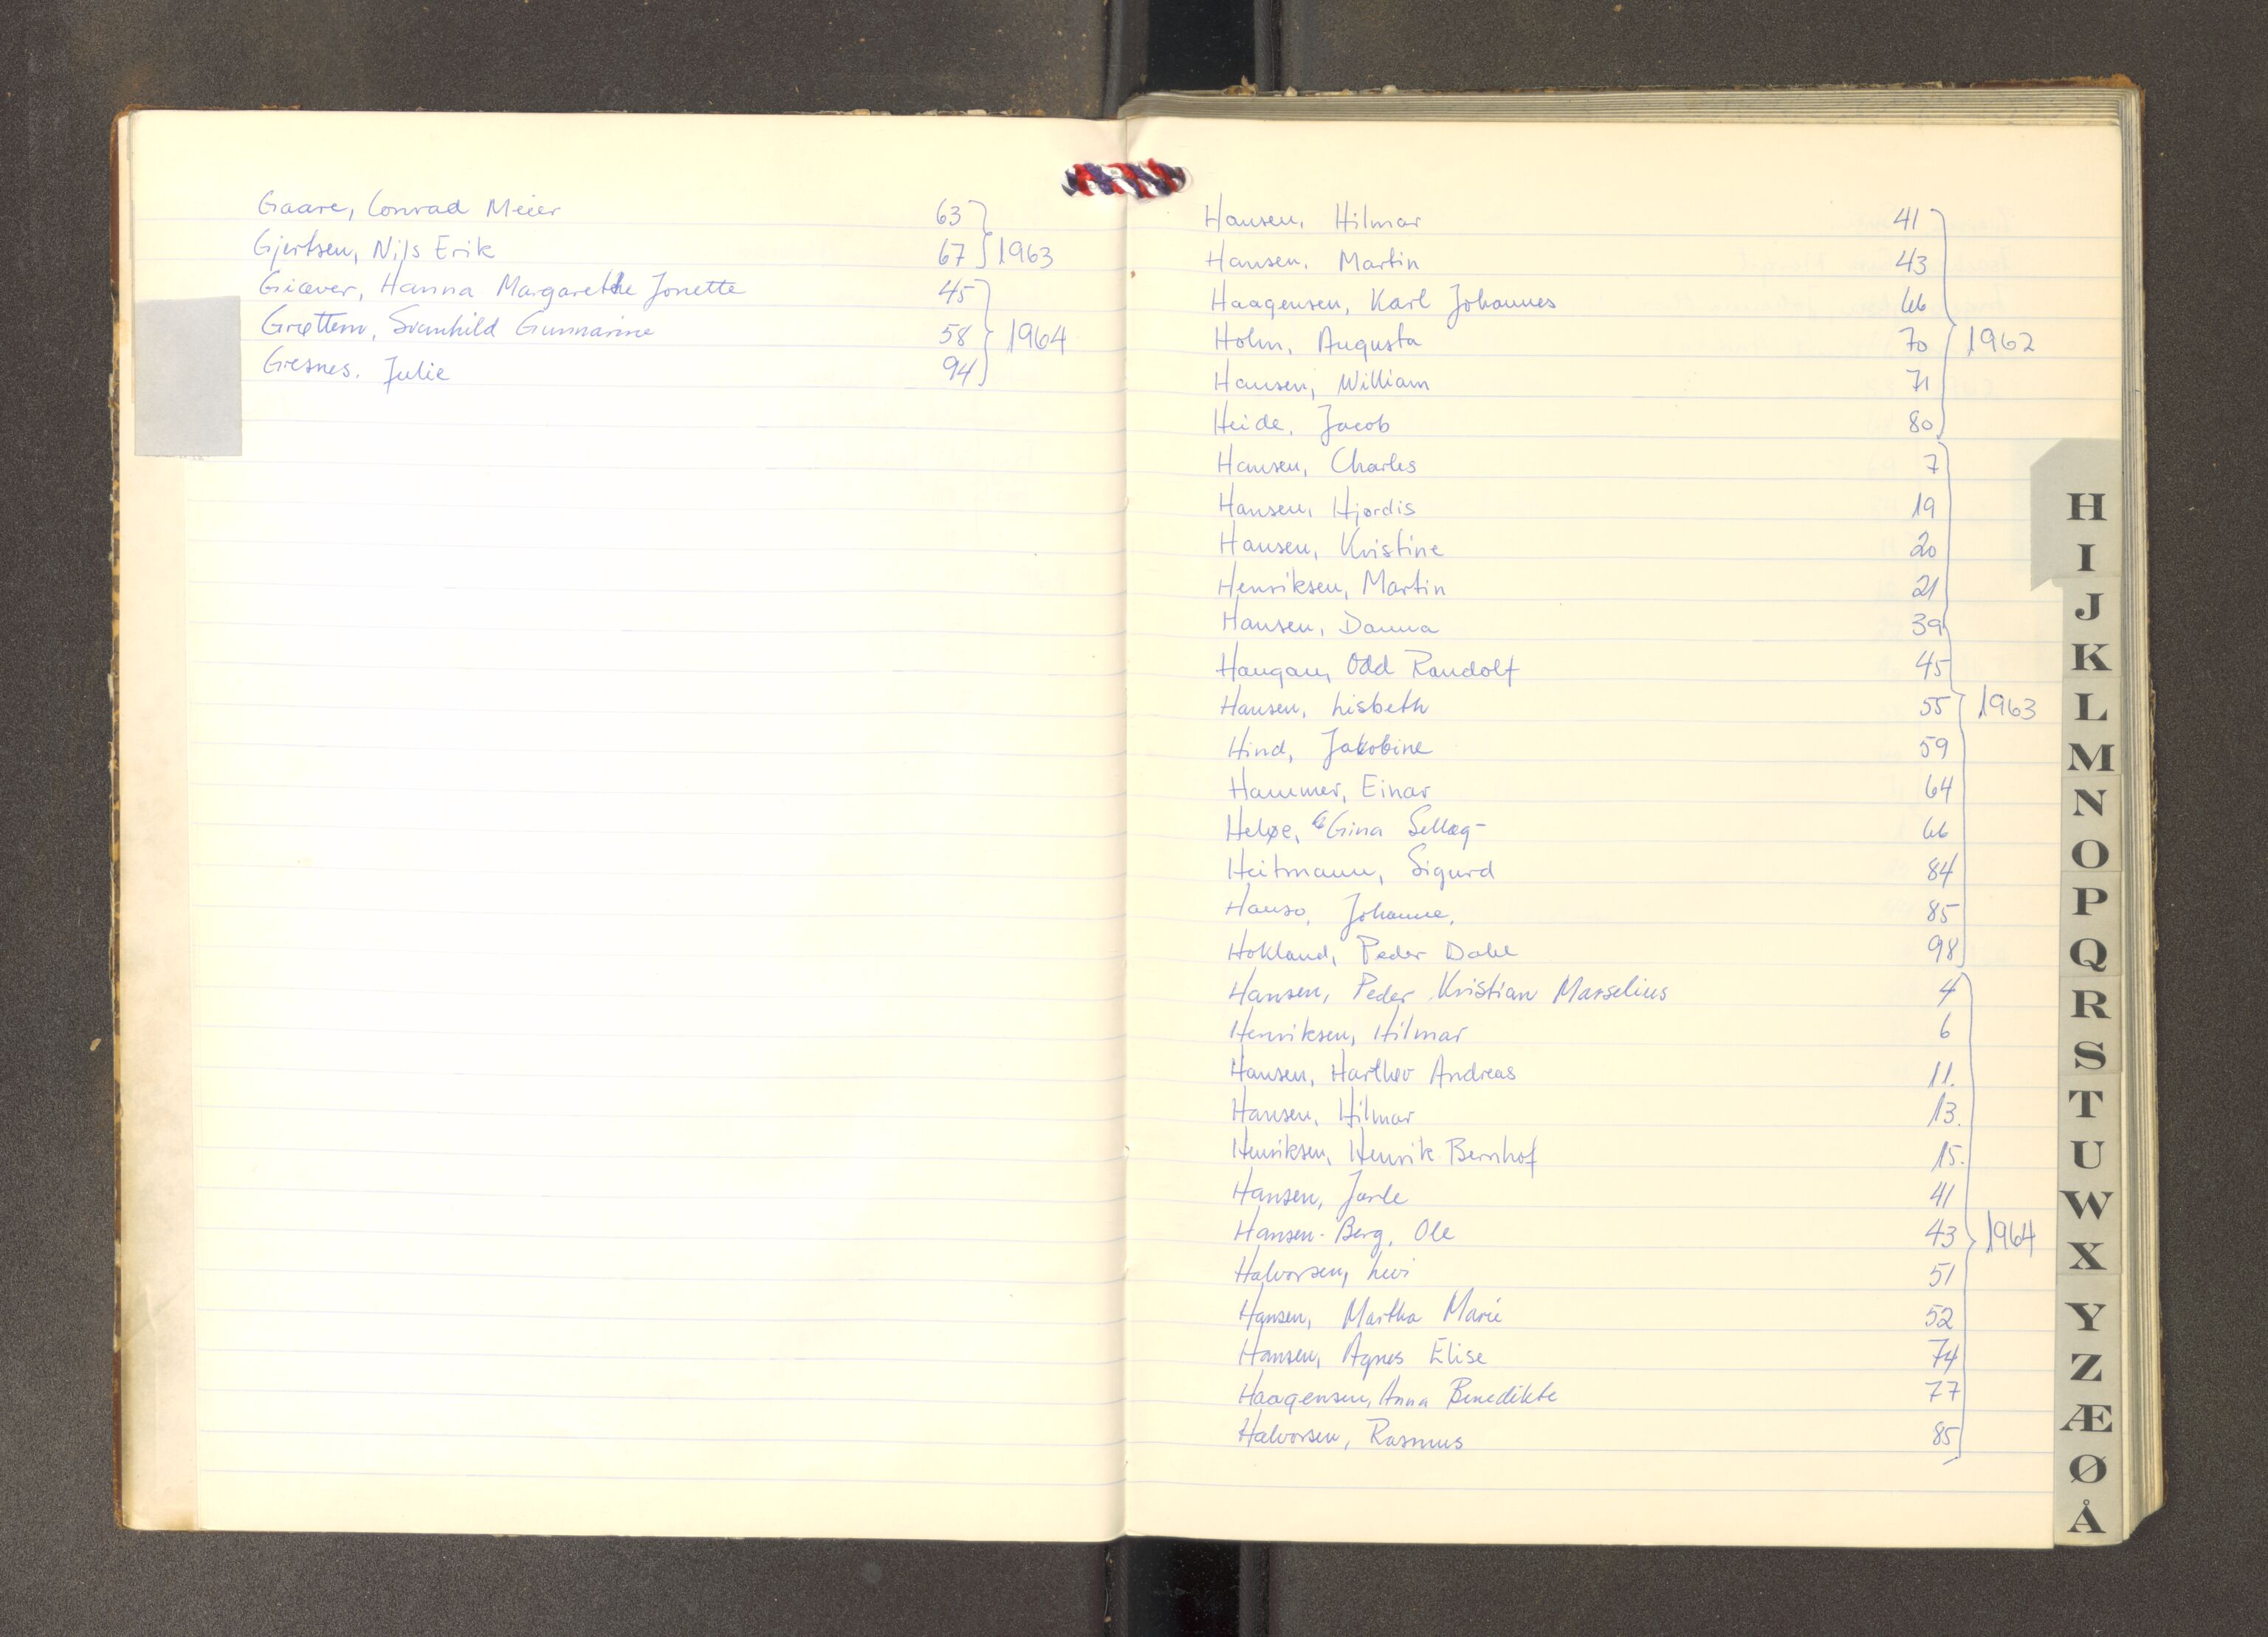 Gaare, Conrad Meier 63
Gjertsen, Nils Erik 67 1963
Giæver, Hanna Margarethe Jonette 45
Grøttem, Svanhild Gunnarine 58 1964
Gresnes. Julie 94
Hansen, Hilmar 41
Hansen. Martin 43
Haagensen, Karl Johannes 66
Holm, Augusta 70 1962
Hansen, William 71
Heide, Jacob 80
Hansen, Charles 7
Hansen, Hjørdis 19
Hansen, Kristine 20
Henriksen, Martin 21
Hansen, Danna 39
Haugan, Odd Randolf 45
Hansen, Lisbeth 55 1963
Hind, Jakobine 59
Hammer, Einar 64
Heløe, Gina Sellæg- 66
Heitmann, Sigurd 84
Hanso, Johanne, 85
Hokland, Peder Dahl 98
Hansen, Peder Kristian Marselius 4
Henriksen, Hilmar 6
Hansen, Harthev Andreas 11.
Hansen, Hilmar 13.
Henriksen, Henrik Bernhof 15.
Hansen, Jarle 41
Hansen-Berg, Ole 43 1964
Halvorsen, Levi 51
Hansen, Martha Marie 52
Hansen, Agnes Elise 74
Haagensen, Anna Benedikte 77
Halvorsen, Rasmus 85
H
I
J
K
L
M
N
O
P
Q
R
S
T
U
W
X
Y
Z
Æ
Ø
Å